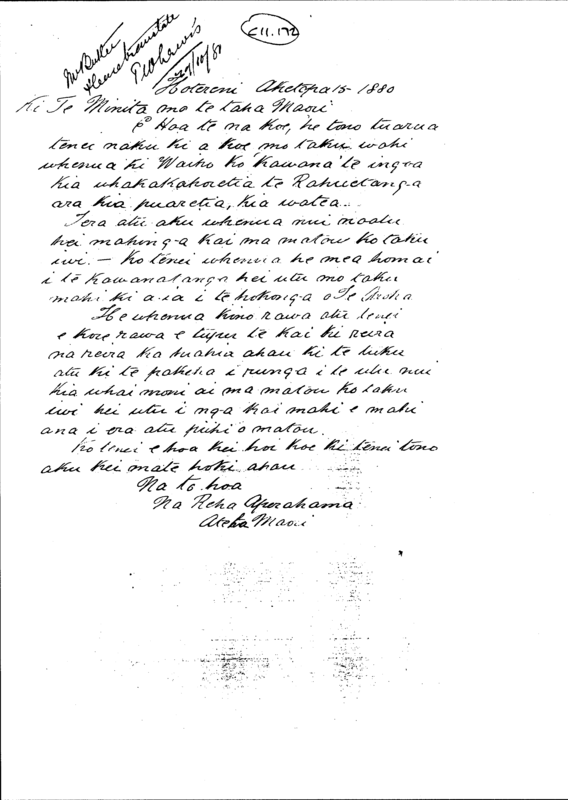 E 11.172
Mr Butler
Please translate
27/10/80
Hotereni Aketopa 15 - 1880
Ki Te Minita mo te taha Maori
E Hoa tena koe, he tono tuarua
tenei naku ki a koe mo taku wahi
whenua ki Waiho ko 'Kawana' te ingoa
kia whakakahoretia te Rahuitanga
ara kia puaretia, kia watea.
Tera atu aku whenua nui noatu
hei mahinga kai ma matou ko taku
iwi. — Ko tenei whenua he mea homai
i te kawanatanga hei utu mo taku
mahi ki a ia i te hokonga o Te Aroha
He whenua kino rawa atu tenei
e kore rawa e tupu te kai ki reira
na reira ka hiahia ahau ki te tuku
atu ki te pakeha i runga i te utu nui
kia whai moni ai ma matou ko taku
iwi hei utu i nga kai mahi e mahi
ana i era atu piihi o matou.
Ko tenei e hoa kei hoi koe ki tenei tono
aku kei mate hoki ahau
Na to hoa
Na Reha Aperahama
Ateha Maori